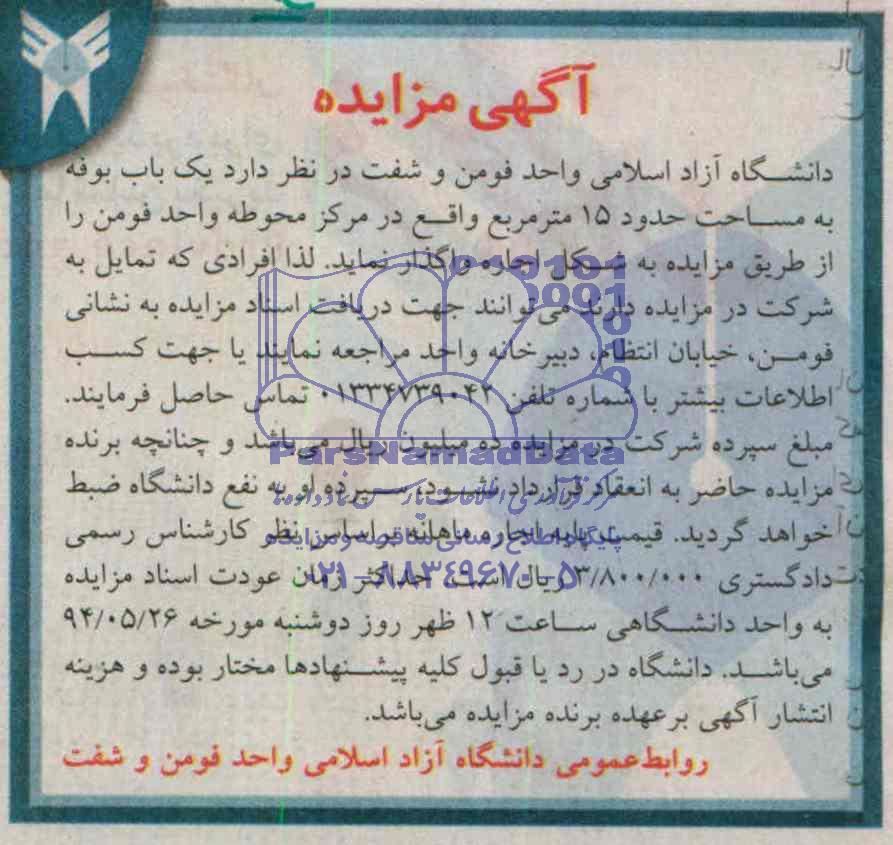 آگهی مزایده
دانشگاه آزاد اسلامی واحد فومن و شفت در نظر دارد یک باب بوفه
به مساحت حدود ۱۵ مترمربع واقع در مرکز محوطه واحد فومن را
از طریق مزایده به شکل اجاره واگذار نماید. لذا افرادی که تمایل به
شرکت در مزایده دارند می‌توانند جهت دریافت اسناد مزایده به نشانی
فومن، خیابان انتظام، دبیرخانه واحد مراجعه نمایند یا جهت کسب
اطلاعات بیشتر با شماره تلفن ۰۱۳۳۴۷۳۹۰۴۲ تماس حاصل فرمایند.
مبلغ سپرده شرکت در مزایده ده میلیون ریال می‌باشد و چنانچه برنده
ParsNamadData
مزایده حاضر به انعقاد قرارداد نشود، سپرده او به نفع دانشگاه ضبط
خواهد گردید. قیمت پایه اجاره ماهانه براساس نظر کارشناس رسمی
پایگاه اطلاع رسانی مناقصه و مزایده
دادگستری ۳/۸۰۰/۰۰۰ ریال است. حداکثر زمان عودت اسناد مزایده
۰۲۱-۸۸۳۴۹۶۷۰-۵
به واحد دانشگاهی ساعت ۱۲ ظهر روز دوشنبه مورخه ۹۴/۰۵/۲۶
می‌باشد. دانشگاه در رد یا قبول کلیه پیشنهادها مختار بوده و هزینه
انتشار آگهی برعهده برنده مزایده می‌باشد.
روابط‌عمومی دانشگاه آزاد اسلامی واحد فومن و شفت